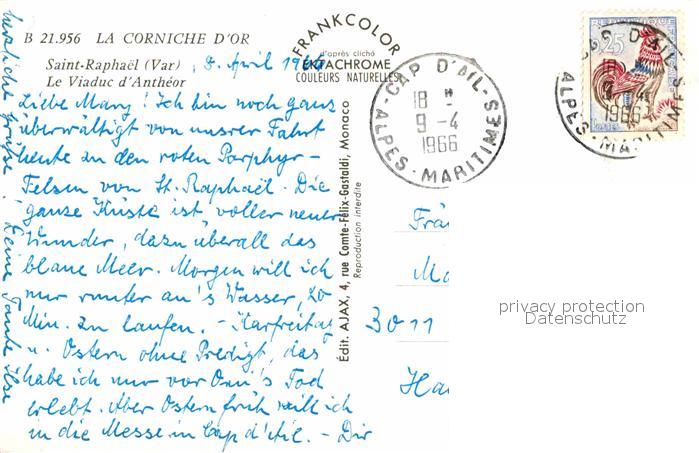 B 21.956 LA CORNICHE D'OR
Saint-Raphaël (Var)
Le Viaduc d'Anthéor
8. April 1966
Liebe Mary! Ich bin noch ganz
überwältigt von unsrer Fahrt
heute zu den roten Porphyr-
Felsen von St. Raphaël. Die
ganze Küste ist voller neuer
Wunder, dazu überall das
blaue Meer. Morgen will ich
nur runter an's Wasser, 20
Min. zu laufen. - Karfreitag
u. Ostern ohne Predigt, das
habe ich nur vor Omi's Tod
erlebt. Aber Ostern früh will ich
in die Messe in Cap d'Ail. - Dir
herzliche Grüsse Deine Tante Ilse
FRANKCOLOR
d'après cliché
EKTACHROME
COULEURS NATURELLES
Édit. AJAX, 4, rue Comte-Félix-Gastaldi, Monaco
Reproduction interdite
CAP D'AIL
18 H
9-4
1966
ALPES-MARITIMES
0,25
CAP D'AIL
18
1966
ALPES-MARITIMES
Frä
3011
Ha
privacy protection
Datenschutz